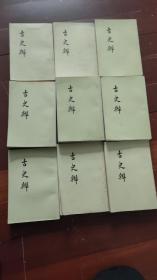 古史辨
古史辨
古史辨
古史辨
古史辨
古史辨
古史辨
古史辨
古史辨